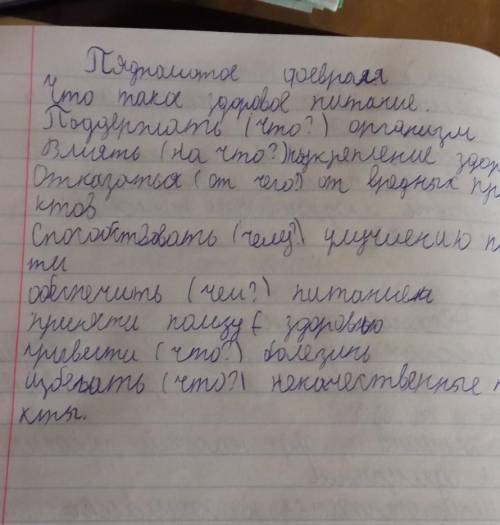 Пядностое февраля
Что такое здоровое питание.
Поддержать (что?) организм
Влиять (на что?) подкрепление здор
Отказаться (от чего?) от вредных пр
ктов
Способствовать (чему?) улучшению п
ти
обеспечить (чем?) питанием
принести пользу здоровью
привести (что?) болезинь
избегать (что?) некачественные п
кты.